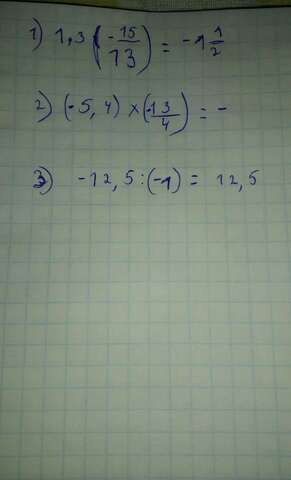 1) 1,3 (-15/13) = -1 1/2
2) (-5,4) × (-13/4) = -
3) -12,5 : (-1) = 12,5